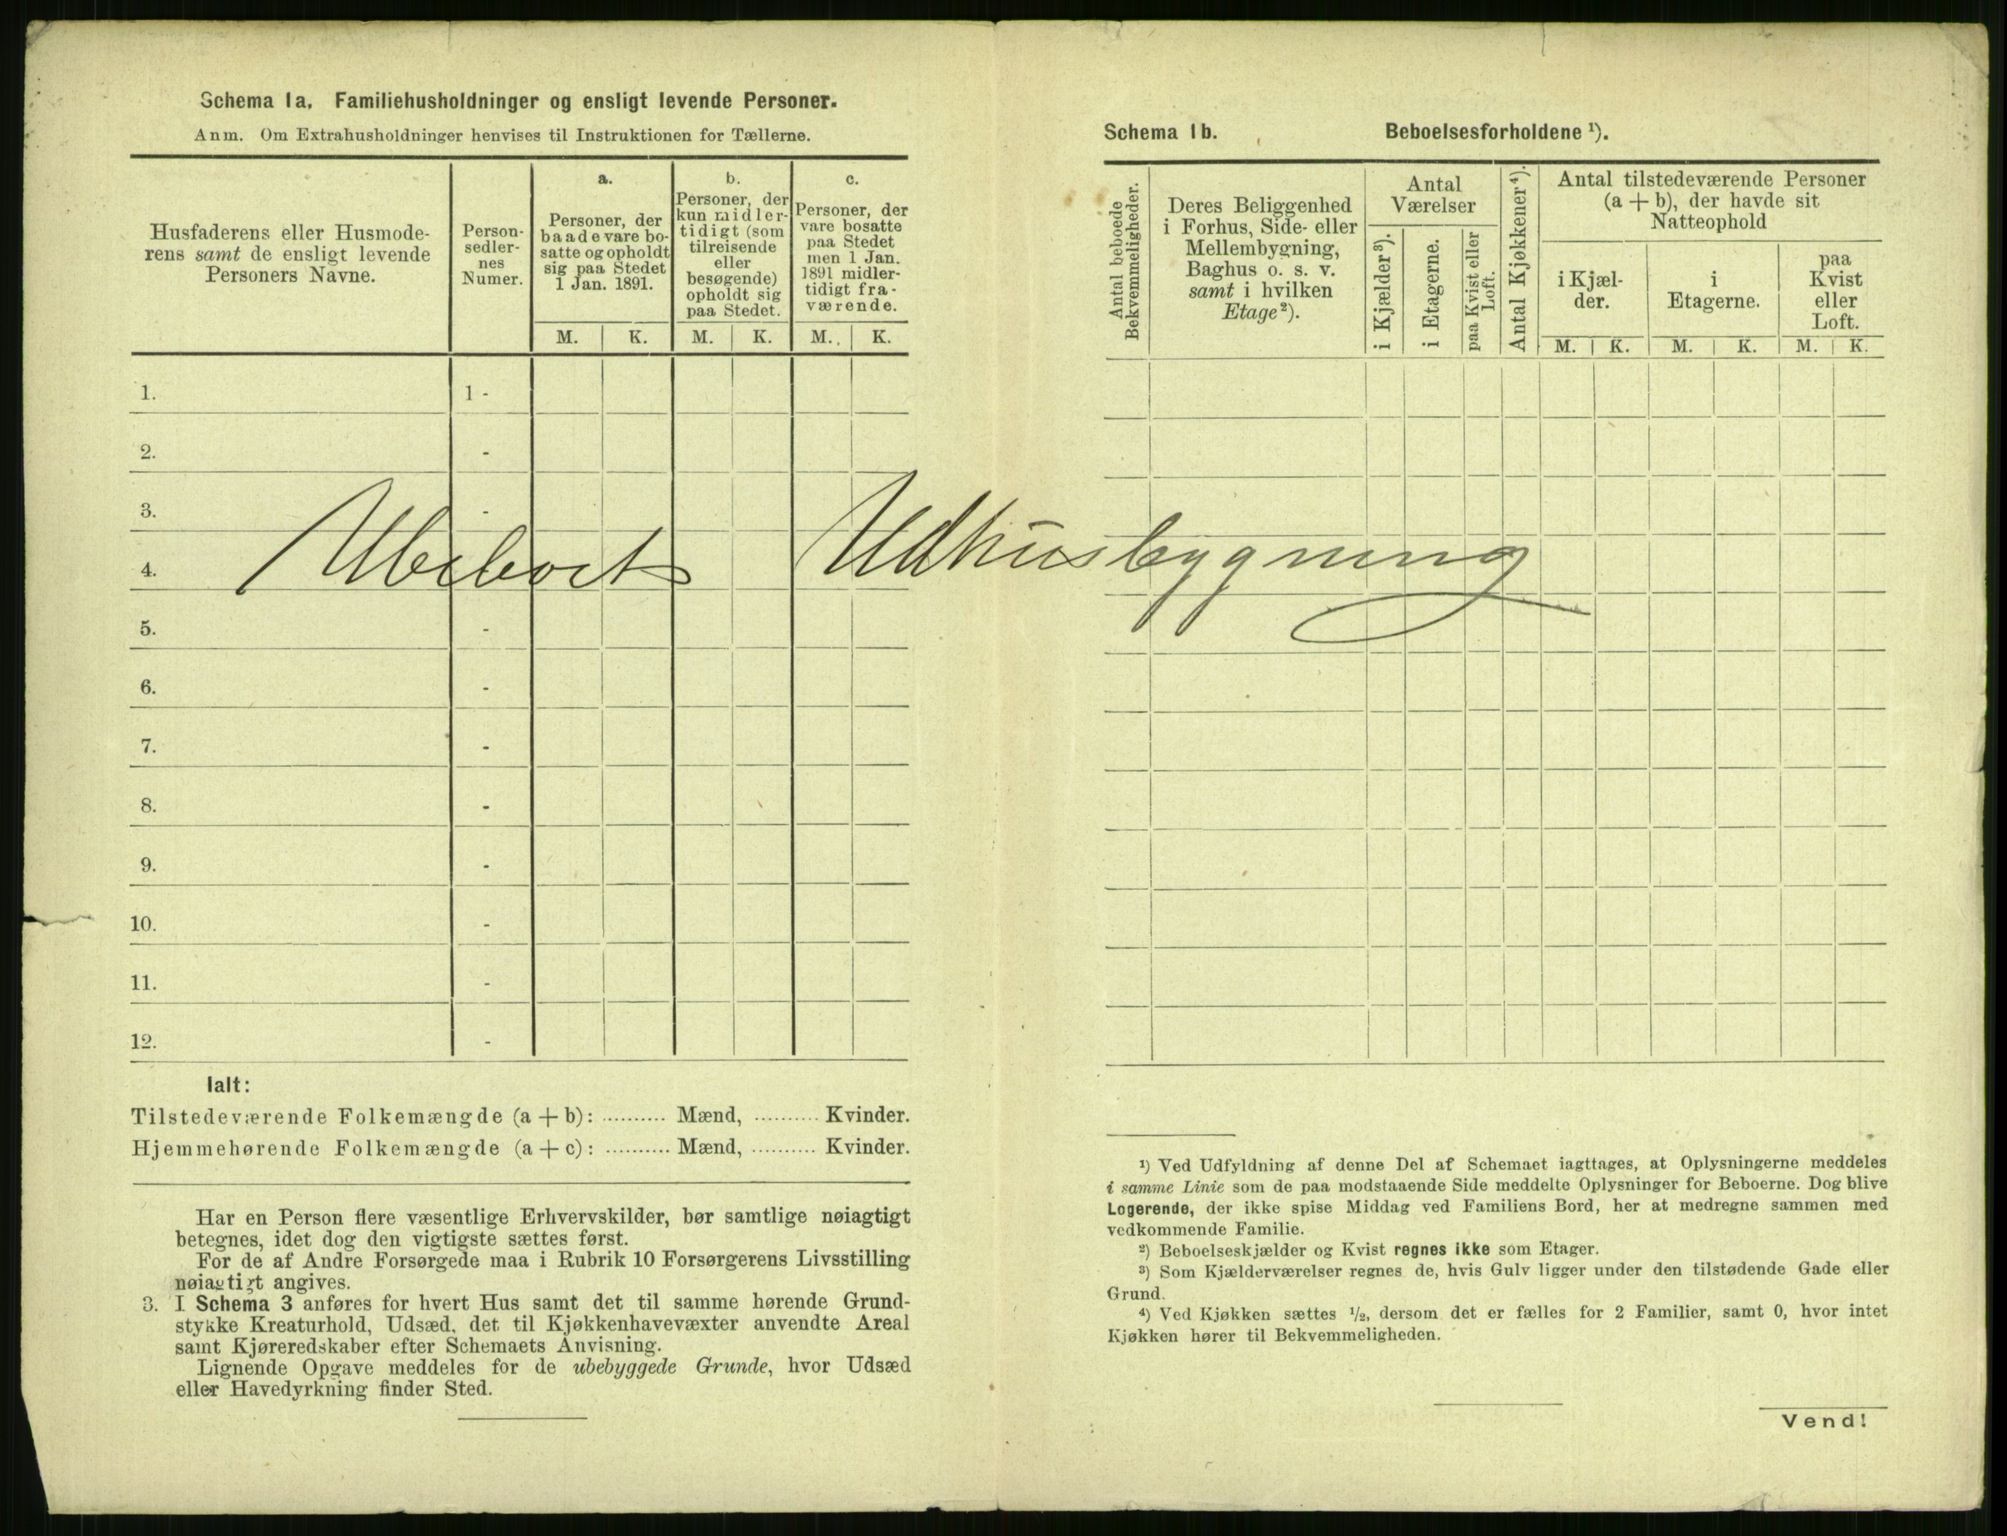 Schema 1a. Familiehusholdninger og ensligt levende Personer.
Anm. Om Extrahusholdninger henvises til Instruktionen for Tællerne.
Husfaderens eller Husmode-
rens samt de ensligt levende
Personers Navne.
Person-
sedler-
nes
Numer.
a.
Personer, der
baade vare bo-
satte og opholdt
sig paa Stedet
1 Jan. 1891.
b.
Personer, der
kun midler-
tidigt (som
tilreisende
eller
besøgende)
opholdt sig
paa Stedet.
c.
Personer, der
vare bosatte
paa Stedet
men 1 Jan.
1891 midler-
tidigt fra-
værende.
M. K. M. K. M. K.
1. 1 -
2. -
3. -
4.
Ubeboet Udhusbygning
5. -
6. -
7. -
8. -
9. -
10. -
11. -
12. -
Ialt:
Tilstedeværende Folkemængde (a + b): .......... Mænd, .......... Kvinder.
Hjemmehørende Folkemængde (a + c): .......... Mænd, .......... Kvinder.
Har en Person flere væsentlige Erhvervskilder, bør samtlige nøiagtigt
betegnes, idet dog den vigtigste sættes først.
For de af Andre Forsørgede maa i Rubrik 10 Forsørgerens Livsstilling
nøiagtigt angives.
3. I Schema 3 anføres for hvert Hus samt det til samme hørende Grund-
stykke Kreaturhold, Udsæd, det til Kjøkkenhavevæxter anvendte Areal
samt Kjøreredskaber efter Schemaets Anvisning.
Lignende Opgave meddeles for de ubebyggede Grunde, hvor Udsæd
eller Havedyrkning finder Sted.
Schema 1b. Beboelsesforholdene ¹).
Antal beboede
Bekvemmeligheder.
Deres Beliggenhed
i Forhus, Side- eller
Mellembygning,
Baghus o. s. v.
samt i hvilken
Etage ²).
Antal
Værelser
i Kjælder ³).
i Etagerne.
paa Kvist eller
Loft.
Antal Kjøkkener ⁴).
Antal tilstedeværende Personer
(a + b), der havde sit
Natteophold
i Kjæl-
der.
i
Etagerne.
paa
Kvist
eller
Loft.
M. K. M. K. M. K.
¹) Ved Udfyldning af denne Del af Schemaet iagttages, at Oplysningerne meddeles
i samme Linie som de paa modstaaende Side meddelte Oplysninger for Beboerne. Dog blive
Logerende, der ikke spise Middag ved Familiens Bord, her at medregne sammen med
vedkommende Familie.
²) Beboelseskjælder og Kvist regnes ikke som Etager.
³) Som Kjælderværelser regnes de, hvis Gulv ligger under den tilstødende Gade eller
Grund.
⁴) Ved Kjøkken sættes ½, dersom det er fælles for 2 Familier, samt 0, hvor intet
Kjøkken hører til Bekvemmeligheden.
Vend!